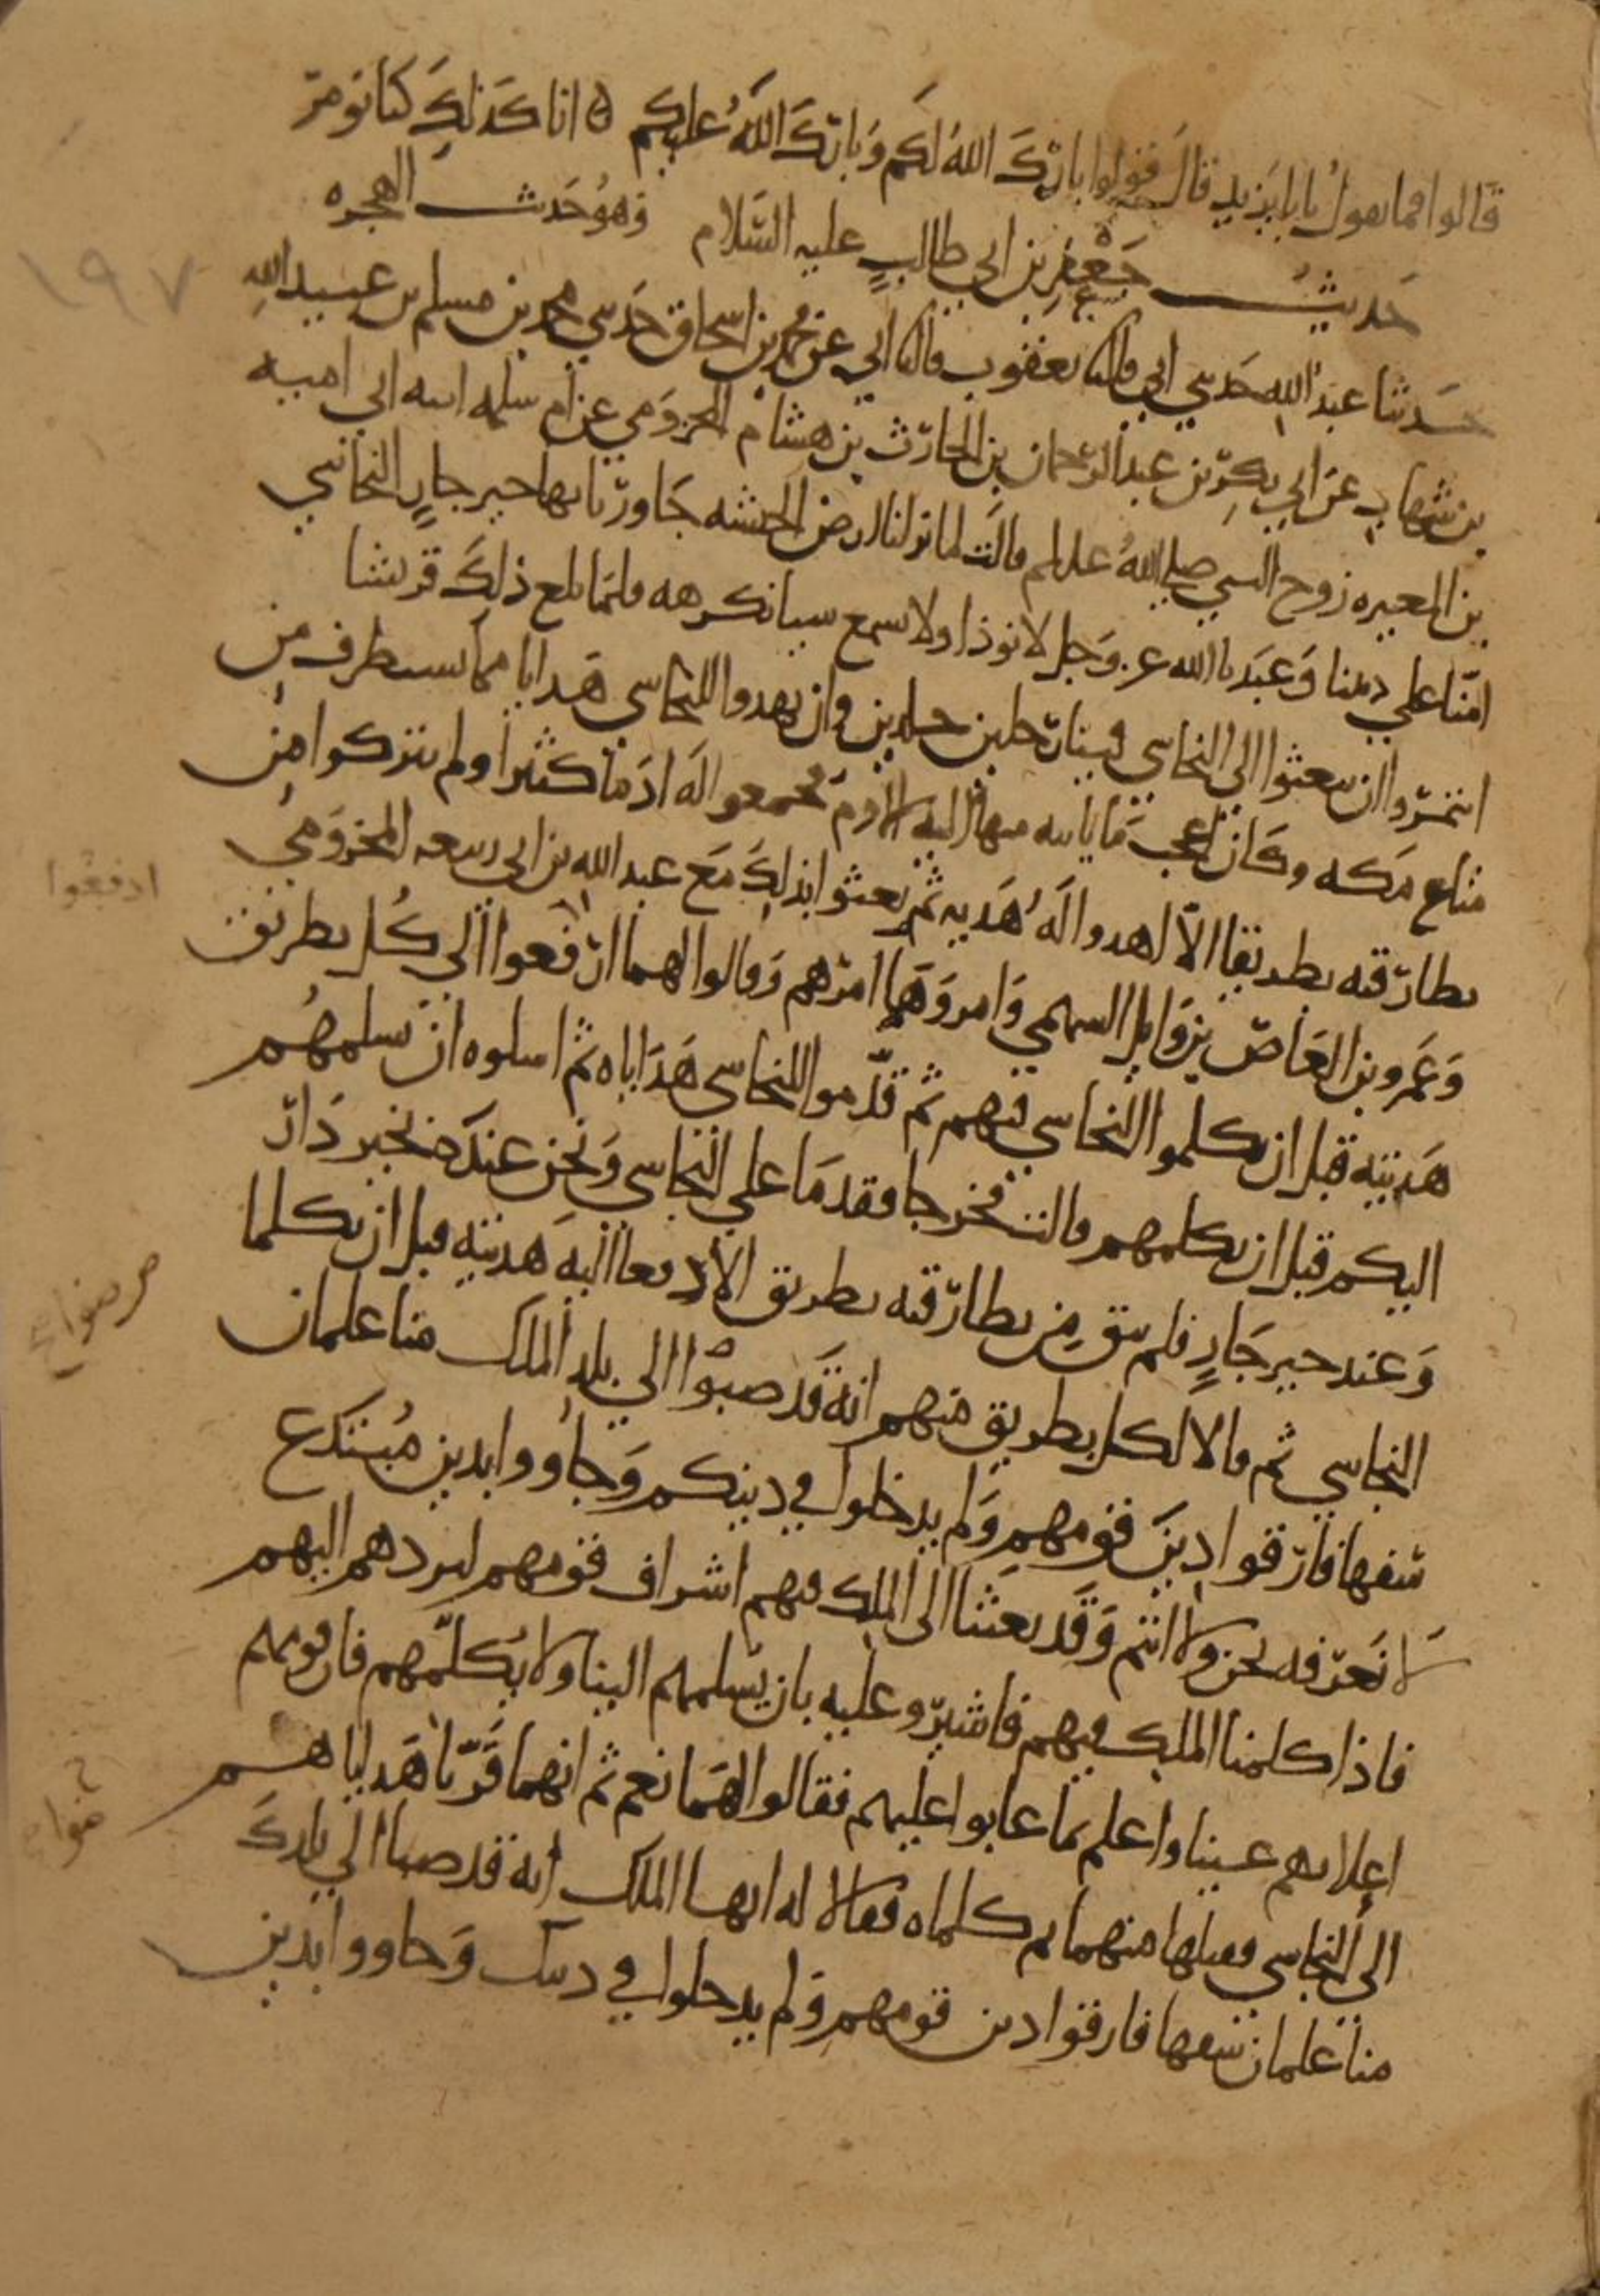 قالوا فما نقول يا بايزيد قال قولوا بارك الله لكم وبارك الله عليكم ه انا كذلك كنا نومر
حديث جعفر بن ابي طالب عليه السلام وهو حديث الهجره
حدثنا عبد الله حدثني ابي قال نا يعقوب قال نا ابي عن محمد بن اسحاق حدثني محمد بن مسلم بن عبيد الله
بن شهاب عن ابي بكر بن عبد الرحمان بن الحارث بن هشام المخزومي عن ام سلمه ابنه ابي اميه
بن المغيره زوج النبي صلى الله عليه وسلم قالت لما نزلنا ارض الحبشه جاورنا بها خير جار النجاشي
امنا على ديننا وعبدنا الله عز وجل لا نوذا ولا نسمع شيا نكرهه فلما بلغ ذلك قريشا
ائتمروا ان يبعثوا الى النجاشي فينا رجلين جلدين وان يهدوا للنجاشي هدايا مما يستطرف من
متاع مكه وكان اعجب ما ياتيه منها اليه الادم فجمعوا له ادما كثيرا ولم يتركوا من
بطارقته بطريقا الا اهدوا له هديه ثم بعثوا بذلك مع عبد الله بن ابي ربيعه المخزومي
وعمرو بن العاص بن وايل السهمي وامروهما امرهم وقالوا لهما ارفعوا الى كل بطريق
هديته قبل ان تكلموا النجاشي فيهم ثم قدموا للنجاشي هداياه ثم اسلوه ان يسلمهم
اليكم قبل ان يكلمهم قالت فخرجا فقدما على النجاشي ونحن عنده بخير دار
وعند خير جار فلم يبق من بطارقته بطريق الا دفعا اليه هديته قبل ان يكلما
النجاشي ثم قالا لكل بطريق منهم انه قد صبوا الى بلد الملك منا غلمان
سفها فارقوا دين قومهم ولم يدخلوا في دينكم وجاووا بدين مبتدع
لا نعرفه نحن ولا انتم وقد بعثنا الى الملك فيهم اشراف قومهم ليردهم اليهم
فاذا كلمنا الملك فيهم فاشيرو عليه بان يسلمهم الينا ولا يكلمهم فان قومهم
اعلا بهم عينا واعلم بما عابوا عليهم فقالوا لهما نعم ثم انهما قربا هداياهم
الى النجاشي فقبلها منهما ثم كلماه فقالا له ايها الملك انه قد صبا الى بلدك
منا غلمان سفها فارقوا دين قومهم ولم يدخلوا في دينك وجاووا بدين
١٩٧
ادفعوا